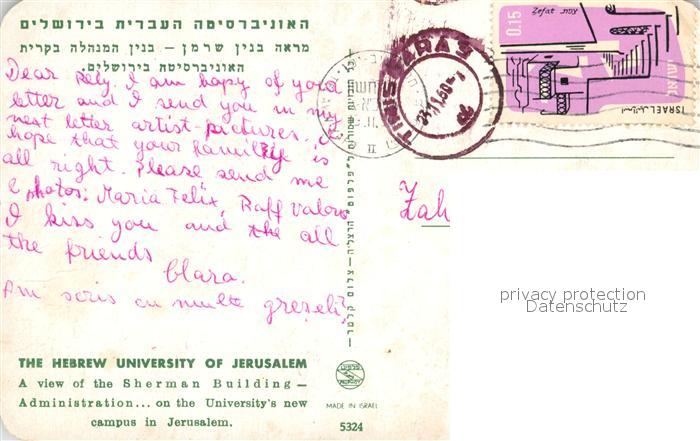 האוניברסיטה העברית בירושלים
מראה בנין שרמן – בנין המנהלה בקרית
האוניברסיטה בירושלים.
Dear Rely, I am hapy of your
letter and I send you in my
next letter artist pictures. I
hope that your familly is
all right. Please send me
photos: Maria Felix, Raff Valone
I kiss you and the all
the friends
Clara.
Am scris cu multe greseli?
THE HEBREW UNIVERSITY OF JERUSALEM
A view of the Sherman Building –
Administration... on the University's new
campus in Jerusalem.
MADE IN ISRAEL
5324
0.15
Zefat צפת
ISRAEL
ישראל
Zah
privacy protection
Datenschutz